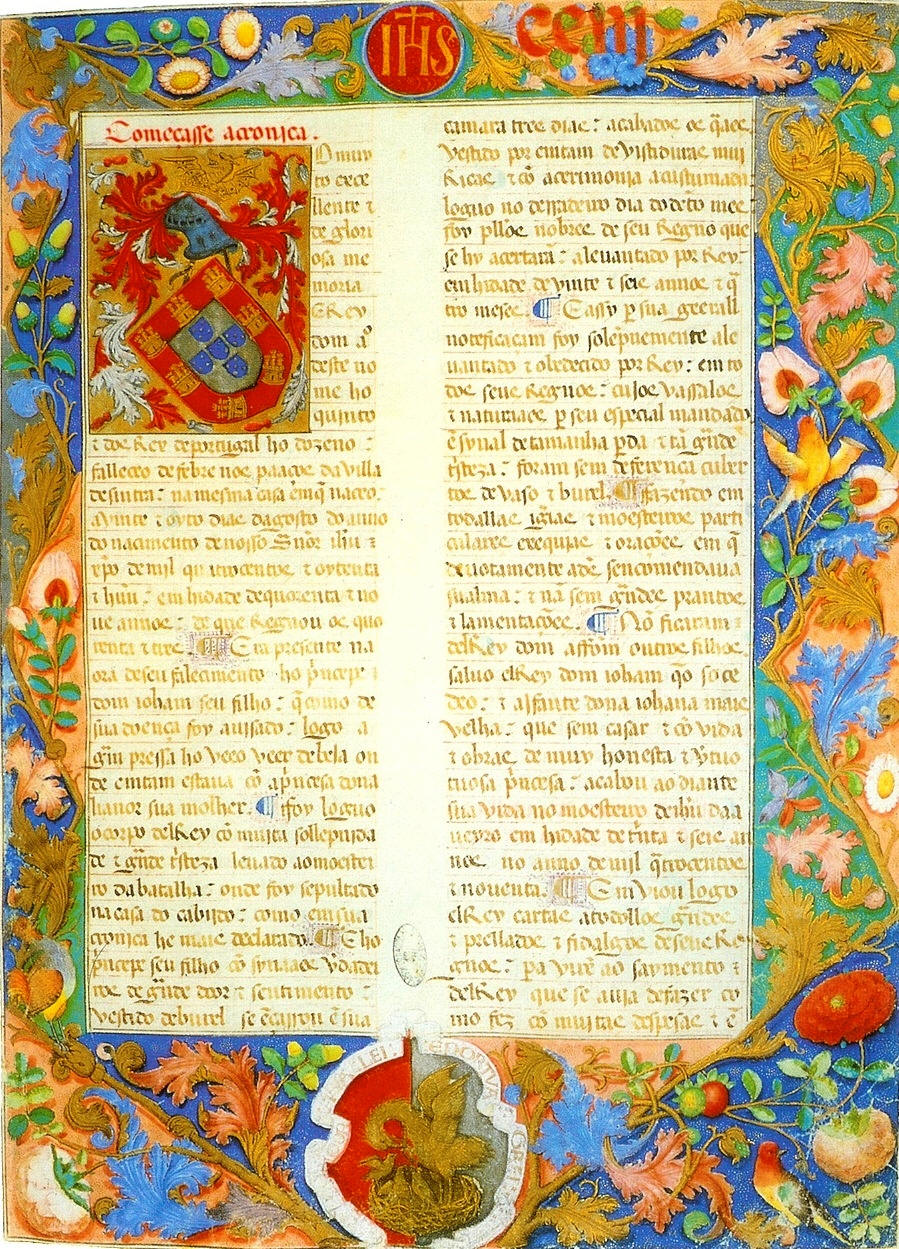 IHS
cem
Começasse acronica.
O muy
to exce
llente τ
de glori
osa me
moria
ElRey
dom aº
deste no
me ho
quinto
τ dos Rey de portugal ho dozeno :
falleceo de febre nos paaços da villa
de sintra : na mesma casa em q̃ naceo :
a vinte τ oyto dias dagosto do anno
do nacimento de nosso Snõr ihũ τ
xp̃o de mil quatrocentos τ oytenta
τ huũ : em hidade de quorenta τ no
ue annos : de que Regnou os quo
renta τ tres ¶ Em presente na
ora de seu falecimento ho prĩcepe
dom ioham seu filho : q̃ como de
sua doença foy auisado : logo a
grã pressa ho veeo veer de beja on
de emtam estaua cõ a prĩcesa dona
lianor sua molher ¶ ffoy loguo
o corpo delRey cõ muita sollepnida
de τ grãde tristeza leuado ao moestei
ro da batalha : onde foy sepultado
na casa do cabijdo : como em sua
cronica he mais declarado ¶ E ho
prĩcepe seu filho cõ synaaes verdadei
ros de grãde door τ sentimento :
vestido de burel se ẽçarrou ẽ sua
camara tres dias : acabados os quaes
vestido por emtam de vistiduras mui
Ricas τ cõ a cerimonia acustumada
loguo no derradeiro dia do dito mes
foy pellos nobres de seu Regno que
se hy acertarã : aleuantado por Rey :
em hidade de vinte τ seis annos τ qua
tro meses ¶ E assy per sua geerall
noteficaçam foy solepnemente ale
uantado τ obedecido por Rey : em to
dos seus Regnos : cujos vassalos
τ naturaaes per seu especial mandado
ẽ synal de tamanha perda τ tã grãde
tristeza : foram sem deferença cuber
tos de vaso τ burel ¶ ffazendo em
todallas igrejas τ moesteiros parti
culares exequias τ orações em q̃
deuotamente a ds sencomendaua
sua alma : τ nã sem grãdes prantos
τ lamentações ¶ Nõ ficaram :
delRey dom affom outros filhos
saluo elRey dom ioham q̃ o soce
deo : τ a jfante dona iohana mais
velha : que sem casar τ cõ vida
τ obras de muy honesta τ virtuo
tuosa prĩcesa : acabou ao diante
sua vida no moesteiro de ihũ daa
ueyro em hidade de trinta τ seis an
nos no anno de mjl q̃trocentos
τ noventa ¶ Emviou logo
elRey cartas a todollos grãdes
τ prellados τ fidalgos de seus Re
gnos : pera virẽ ao saymento τ
delRey que se auia de fazer co
mo fez cõ muitas despesas τ ẽ